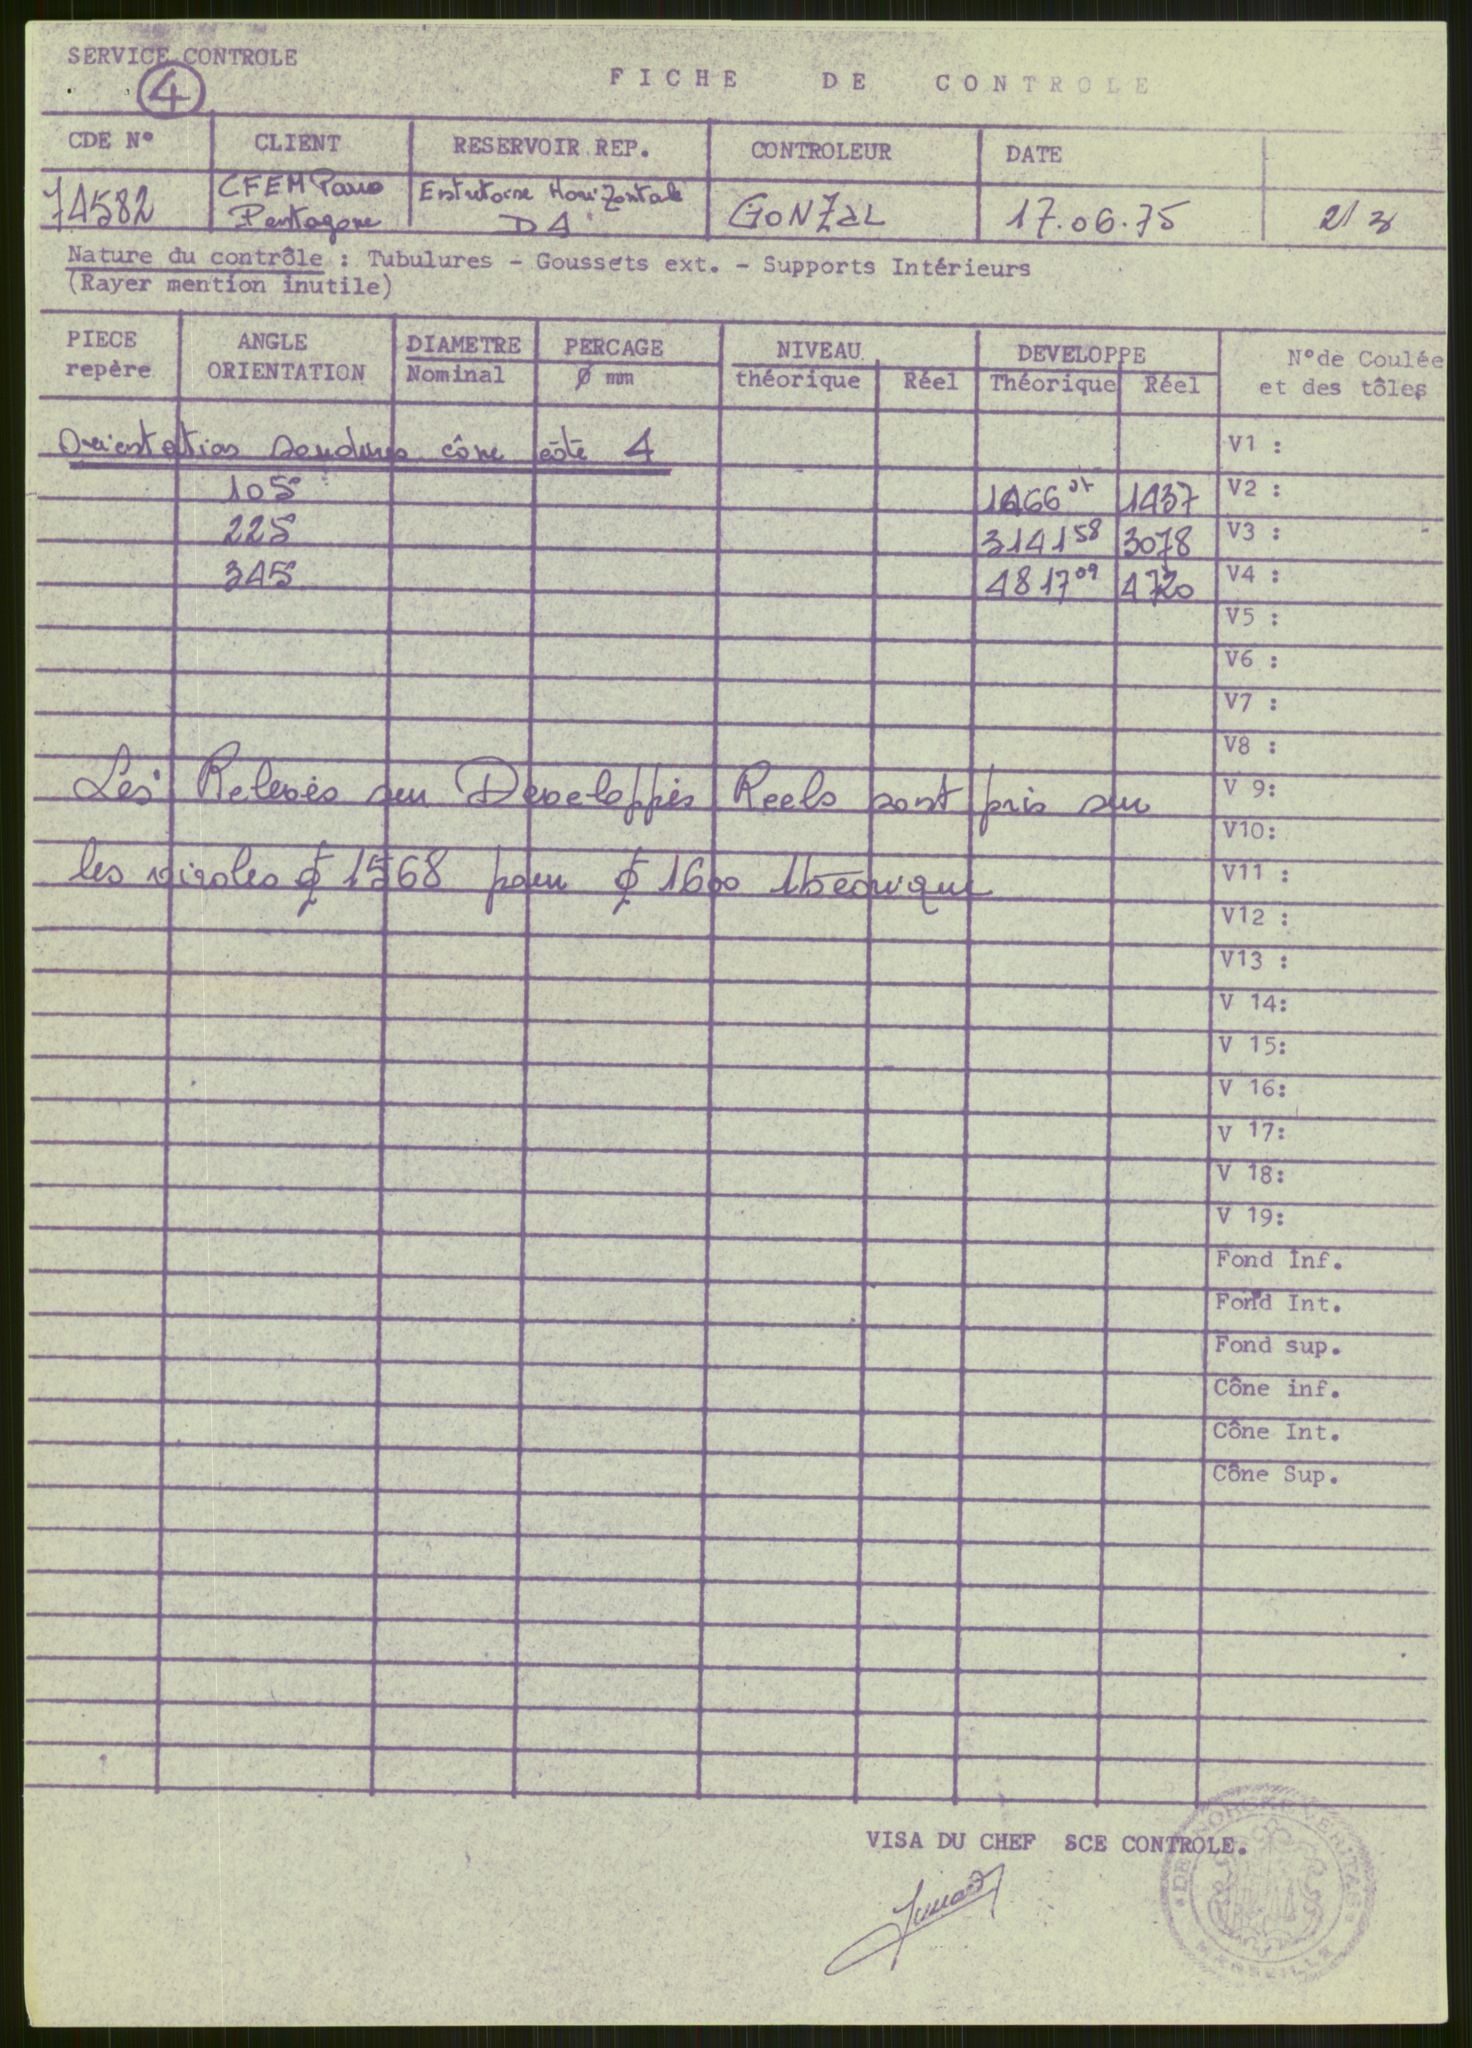 SERVICE CONTROLE
4
FICHE DE CONTROLE
CDE N° CLIENT RESERVOIR REP. CONTROLEUR DATE
74582 CFEM Paris Pentagone Horizontale D4 GONZAL 17.06.75
Nature du contrôle : Tubulures - Goussets ext. - Supports Intérieurs
(Rayer mention inutile)
PIECE repère ANGLE ORIENTATION DIAMETRE Nominal PERCAGE Ø mm NIVEAU théorique Réel DEVELOPPE Théorique Réel N° de Coulée et des tôles
Orientation soudures cône côté 4
V1 :
105 1466 1437 V2 :
225 3141 58 3078 V3 :
345 4817 09 4720 V4 :
V5 :
V6 :
V7 :
V8 :
Les Relevés sur Developpés Reels sont pris sur
V 9:
V10:
les viroles ₵ 1568 pour ₵ 1600 théorique
V11 :
V12 :
V13 :
V 14:
V 15:
V 16:
V 17:
V 18:
V 19:
Fond Inf.
Fond Int.
Fond sup.
Cône inf.
Cône Int.
Cône Sup.
VISA DU CHEF SCE CONTROLE.
DET NORSKE VERITAS
MARSEILLE